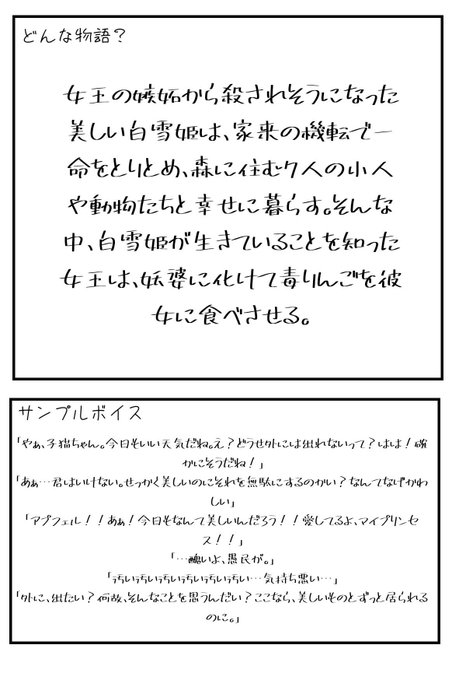 どんな物語？
女王の嫉妬から殺されそうになった
美しい白雪姫は、家来の機転で一
命をとりとめ、森に住む7人の小人
や動物たちと幸せに暮らす。そんな
中、白雪姫が生きていることを知った
女王は、妖婆に化けて毒りんごを彼
女に食べさせる。
サンプルボイス
「やぁ、子猫ちゃん。今日もいい天気だね。え？どうせ外には出れないって？はは！確
かにそうだね！」
「あぁ…君はいけない。せっかく美しいのにそれを無駄にするのかい？なんてなげかわ
しい」
「アプフェル！！あぁ！今日もなんて美しいんだろう！！愛してるよ、マイプリンセ
ス！！」
「…醜いよ、愚民が。」
「汚い汚い汚い汚い汚い汚い汚い…気持ち悪い…」
「外に、出たい？何故、そんなことを思うんだい？ここなら、美しいものとずっと居られる
のに。」